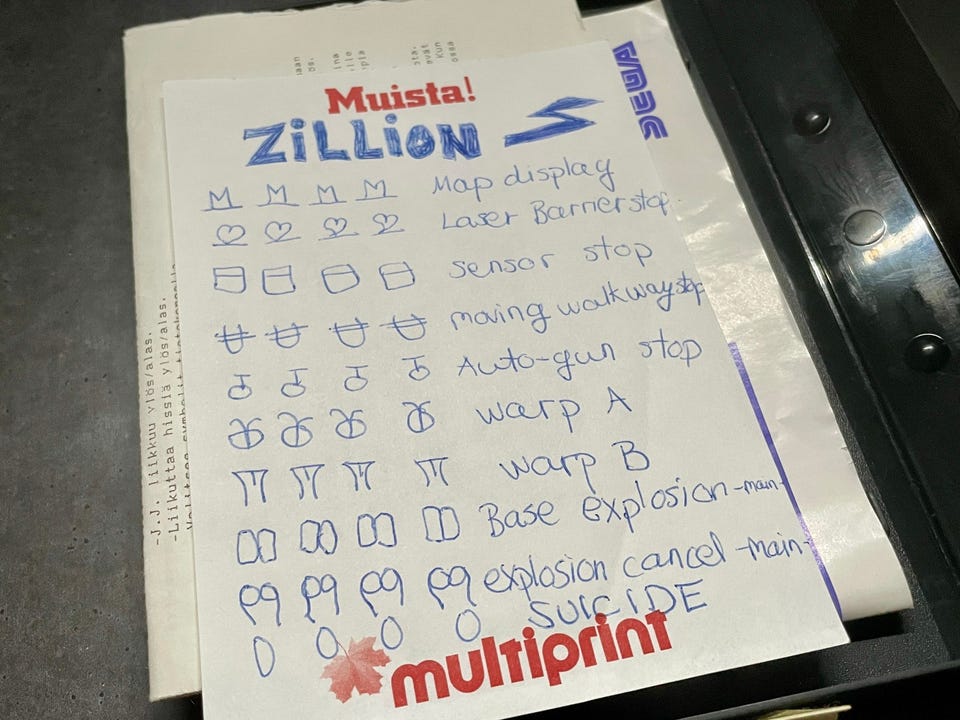 Muista!
ZiLLiON
SEGA
M M M M Map display
Laser Barrier stop
sensor stop
moving walkway stop
Auto-gun stop
warp A
warp B
Base explosion -main-
explosion cancel -main-
SUICIDE
multiprint
-J.J. liikkuu ylös/alas.
-Liikuttaa hissiä ylös/alas.